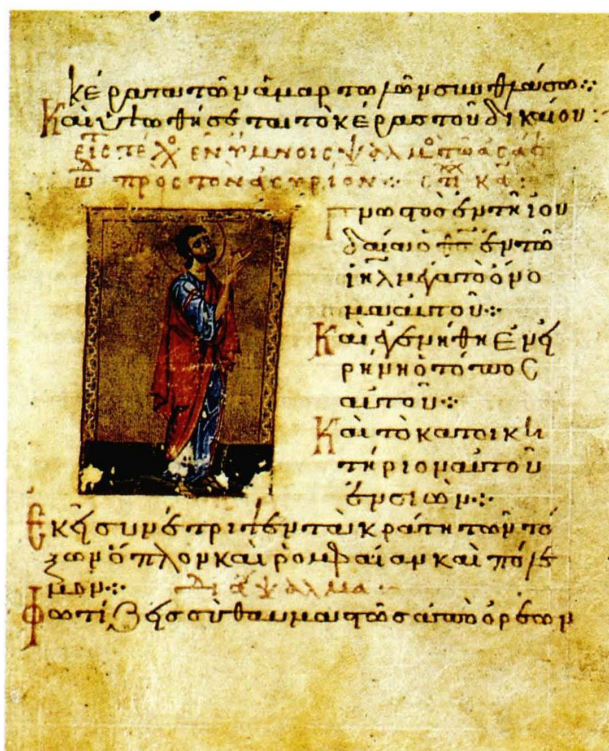 κέρατα τῶν ἁμαρτωλῶν συνθλάσω:·
Καὶ ὑψωθήσεται τὸ κέρας τοῦ δικαίου:
ἐν ὕμνοις ψαλμο τῶ ἀσὰφ
πρὸς τὸν ἀσύριον:·
Γνωστὸς ἐν τῆ ἰου
δαία ὁ θς ἐν τῶ
ιηλ μέγα τὸ ὄνο
μα αὐτοῦ:·
Καὶ ἐγενήθη ἐν εἰ
ρήνη ὁ τόπος
αὐτοῦ:·
Καὶ τὸ κατοικη
τήριον αὐτοῦ
ἐν σιών:·
Ἐκεῖ συνέτριψεν τὰ κράτη τῶν τό
ξων ὅπλον καὶ ῥομφαίαν καὶ πόλε
μον:· Διάψαλμα
Φωτίζεις σὺ θαυμαστῶς ἀπὸ ὀρέων